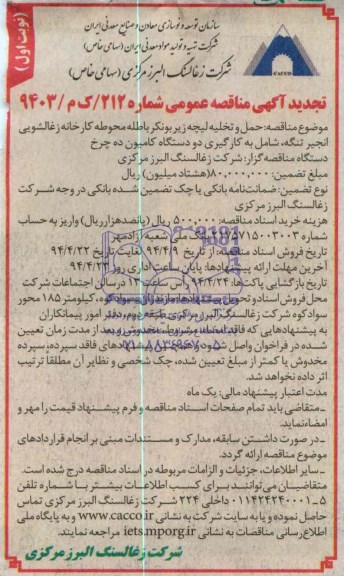 (نوبت اول)
سازمان توسعه و نوسازی معادن و صنایع معدنی ایران
شرکت تهیه و تولید مواد معدنی ایران (سهامی خاص)
شرکت زغالسنگ البرز مرکزی (سهامی خاص)
CACCO
تجدید آگهی مناقصه عمومی شماره ۲۱۲/ک م/۹۴۰۳
موضوع مناقصه: حمل و تخلیه لیچه زیر بونکر باطله محوطه کارخانه زغالشویی
انجیر تنگه، شامل به کارگیری دو دستگاه کامیون ده چرخ
دستگاه مناقصه گزار: شرکت زغالسنگ البرز مرکزی
مبلغ تضمین: ۸۰,۰۰۰,۰۰۰ (هشتاد میلیون) ریال
نوع تضمین: ضمانت‌نامه بانکی یا چک تضمین شده بانکی در وجه شرکت
زغالسنگ البرز مرکزی
هزینه خرید اسناد مناقصه: ۵۰۰,۰۰۰ ریال (پانصد هزار ریال) واریز به حساب
شماره ملی شعبه
تاریخ فروش اسناد مناقصه: از تاریخ ۹۴/۴/۹ لغایت تاریخ ۹۴/۴/۲۲
آخرین مهلت ارائه پیشنهادها: پایان ساعت اداری روز
تاریخ بازگشایی پاکت‌ها: ۹۴/۴/۲۴ رأس ساعت ۱۳ در سالن اجتماعات شرکت
محل فروش اسناد و تحویل پیشنهادها: مازندران، سوادکوه، کیلومتر ۱۸۵ محور
سوادکوه شرکت زغالسنگ البرز مرکزی، طبقه دوم، دفتر امور پیمانکاران
به پیشنهادهایی که فاقد امضاء، مشروط، مخدوش و بعد از مدت زمان تعیین
شده در فراخوان واصل شود و همچنین پیشنهادهای فاقد سپرده، سپرده
مخدوش یا کمتر از مبلغ تعیین شده، چک شخصی و نظایر آن مطلقا ترتیب
اثر داده نخواهد شد.
مدت اعتبار پیشنهاد مالی: یک ماه
ـ متقاضی باید تمام صفحات اسناد مناقصه و فرم پیشنهاد قیمت را مهر و
امضاء نماید.
ـ در صورت داشتن سابقه، مدارک و مستندات مبنی بر انجام قراردادهای
موضوع مناقصه ارائه گردد.
ـ سایر اطلاعات، جزئیات و الزامات مربوطه در اسناد مناقصه درج شده است.
متقاضیان می‌توانند برای کسب اطلاعات بیشتر با شماره تلفن
۵ـ۰۱۱۴۲۴۲۴۰۰۱ داخلی ۲۲۴ شرکت زغالسنگ البرز مرکزی تماس
حاصل نموده و یا به سایت شرکت به نشانی www.cacco.ir و به پایگاه ملی
اطلاع رسانی مناقصات به نشانی iets.mporg.ir مراجعه نمایند.
شرکت زغالسنگ البرز مرکزی